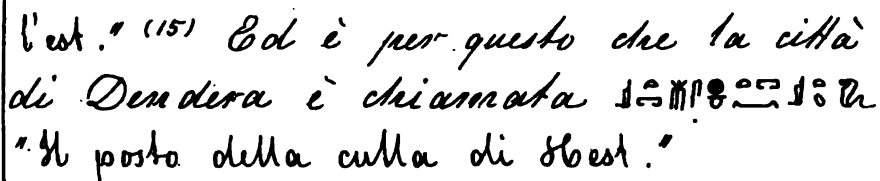 l'est." (15) Ed è per questo che la città
di Dendera è chiamata
"Il posto della culla di Hest."